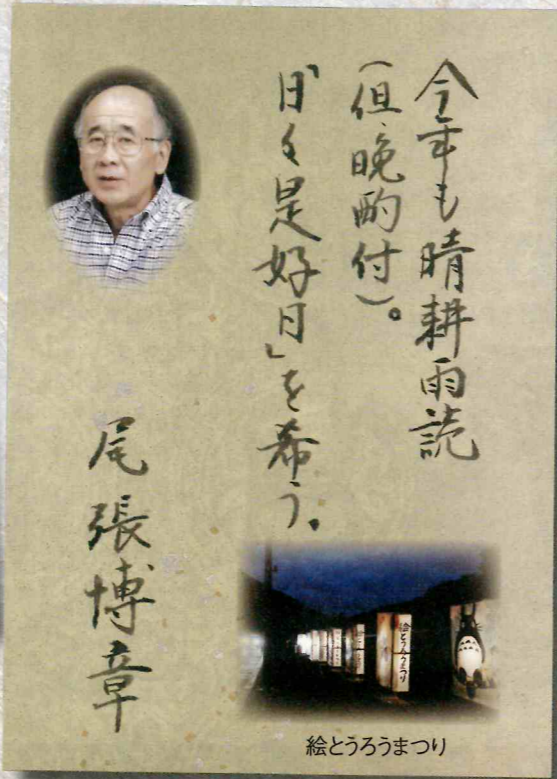 今年も晴耕雨読
(但、晩酌付)。
「日々是好日」を希う。
尾張博章
絵とうろうまつり
絵とうろうまつり